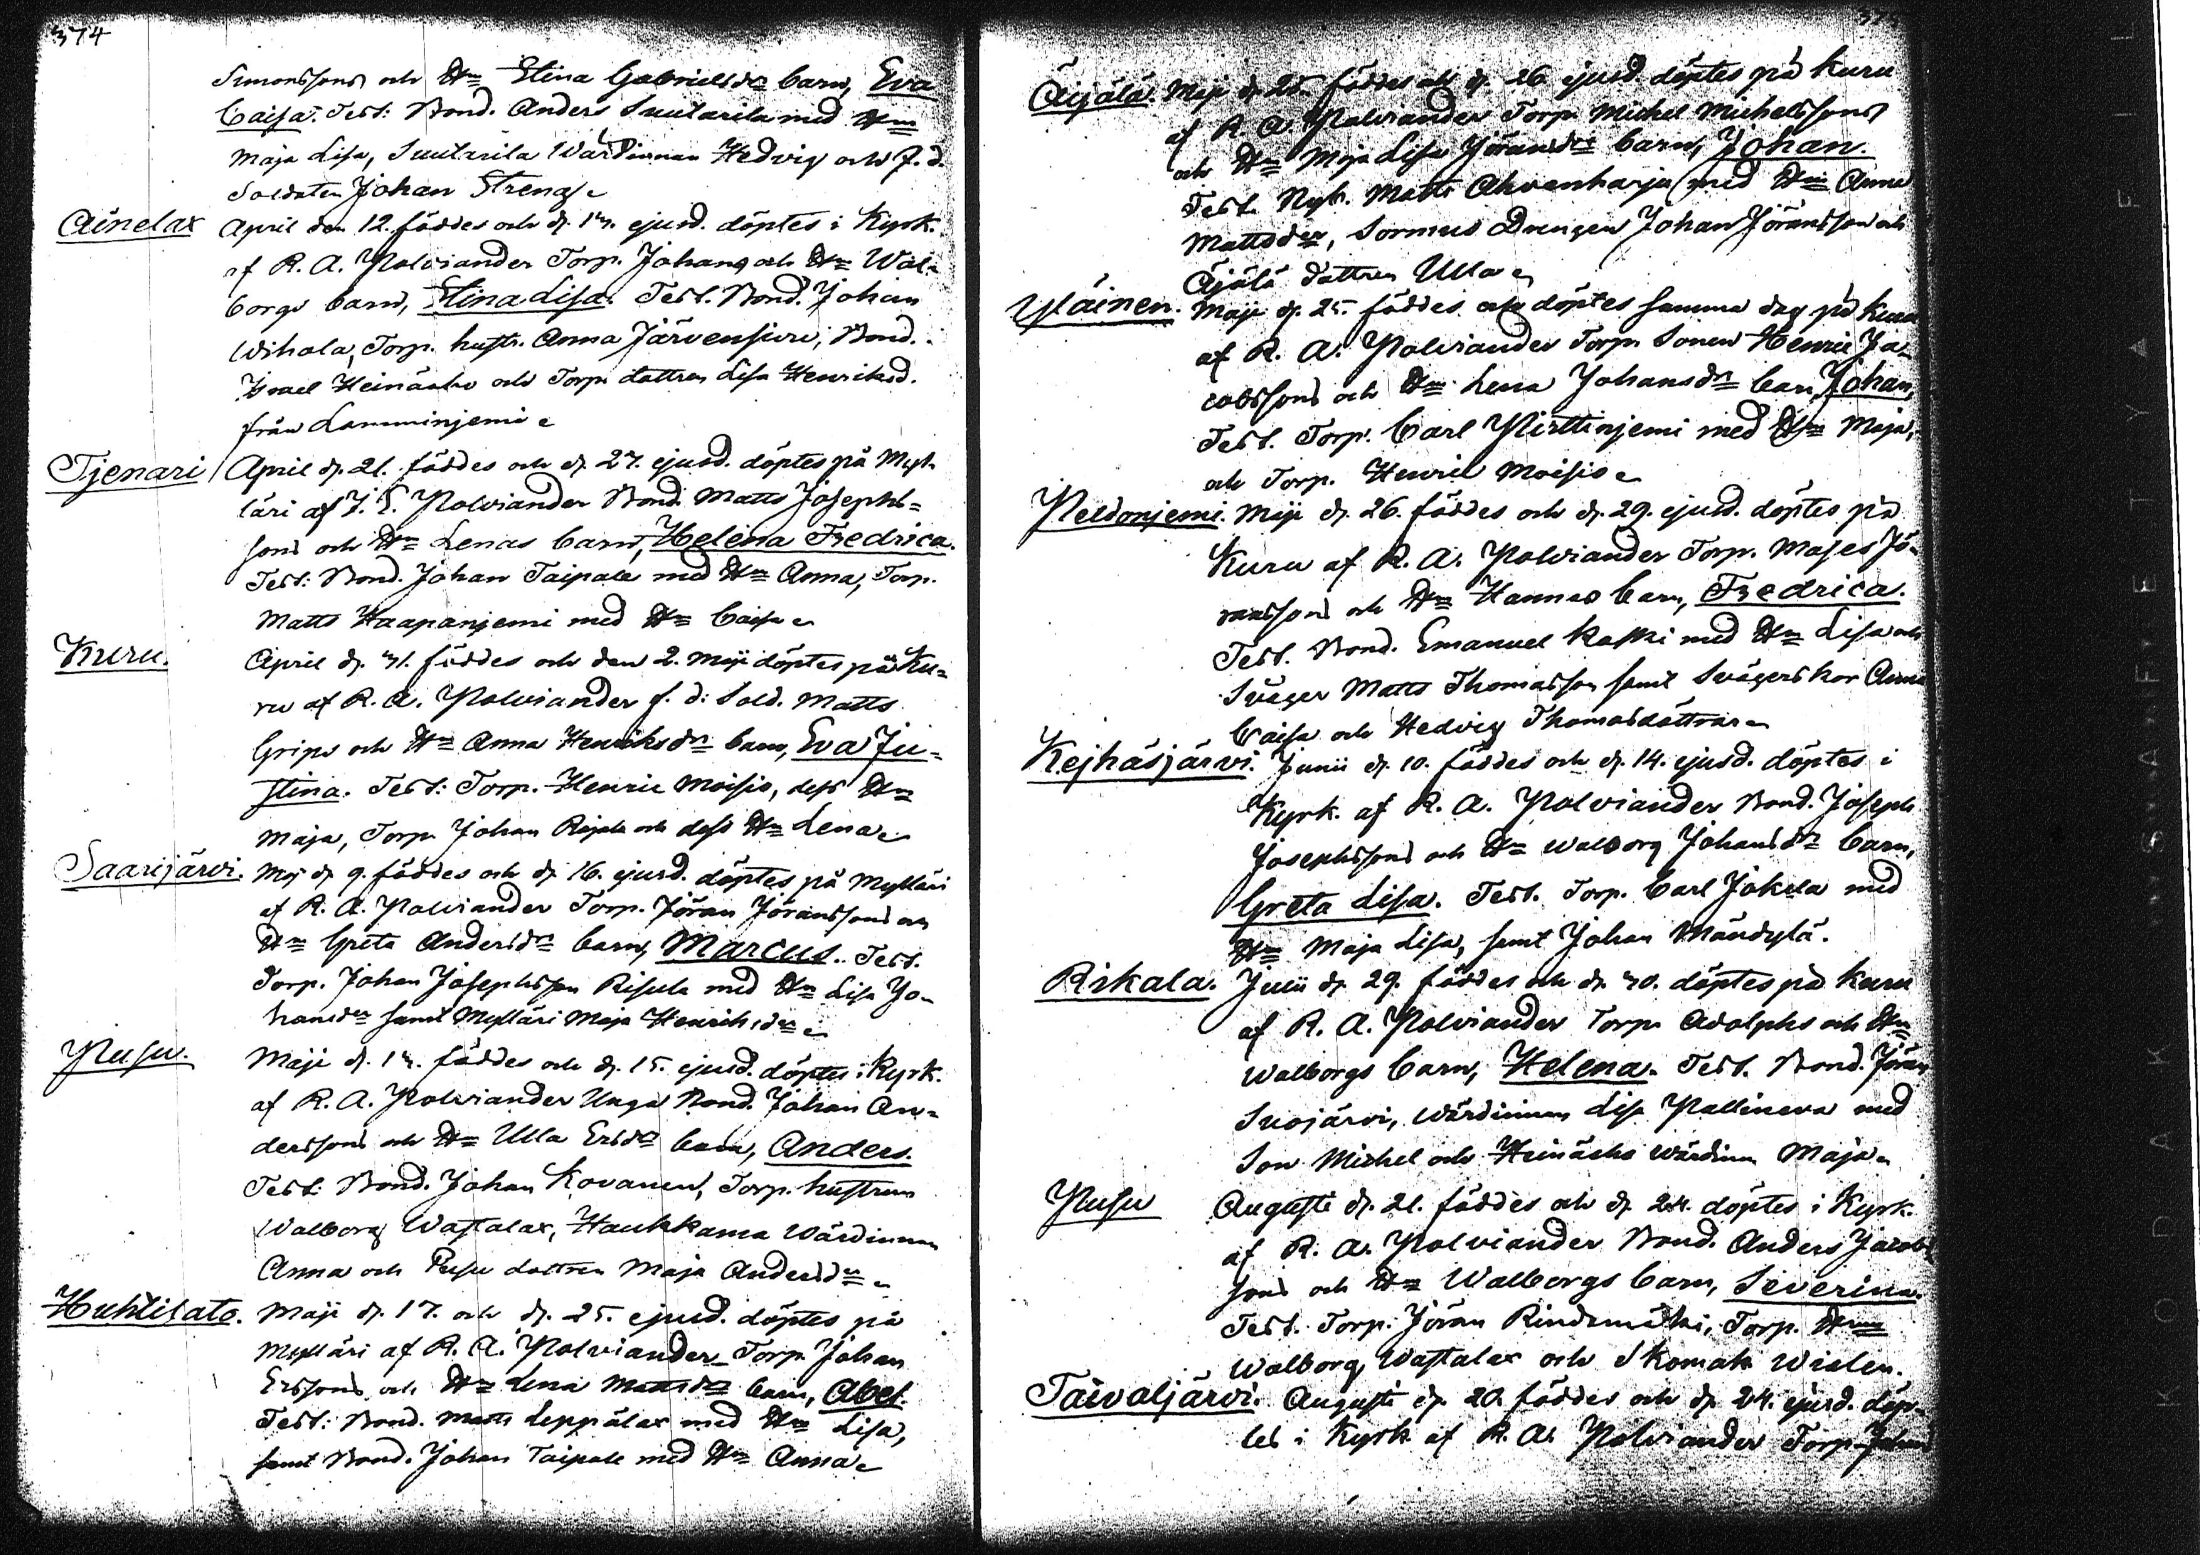 374
Simonssons och H:n Stina Gabrielsd:rs barn, Eva
Caisa. Test: Bond. Anders Suutarila med H:n
Maja Lisa, Suutarila Wärdinnan Hedvig och f.d.
Soldaten Johan Streng
Ainelax April den 12. föddes och d. 13. ejusd. döptes i Kyrk.
af R. A. Polviander Torp. Johans och H:n Wal-
borgs barn, Stina Lisa. Test. Bond. Johan
Wihola, Torp. hustr. Anna Järvensivu, Bond.
Israel Heinäaho och Torp. dottren Lisa Henriksd.
från Lamminjemi
Tjenari April d. 21. föddes och d. 27. ejusd. döptes på Myl-
läri af J. E. Polviander Bond. Matts Josephs=
sons och H:n Lenas barn, Helena Fredrica.
Test: Bond. Johan Taipale med H:n Anna, Torp.
Matts Haapanjemi med H:n Caisa
Kuru. April d. 31. föddes och den 2. Maji döptes på Ku=
ru af R. A. Polviander f. d: Sold. Matts
Grips och H:n Anna Henriksd:rs barn, Eva Ju=
stina. Test: Torp. Henric Moisio, dess H:n
Maja, Torp. Johan och dess H:n Lena
Saarijärvi. Maj d. 9. föddes och d. 16. ejusd. döptes på Mylläri
af R. A. Polviander Torp. Jöran Jöranssons och
H:n Greta Andersd:rs barn, Marcus. Test.
Torp. Johan Josephsson Risula med H:n Lisa Jo-
hansd:r samt Mylläri Maja Henriksd:r
Pusu. Maji d. 13. föddes och d. 15. ejusd. döptes i Kyrk.
af R. A. Polviander Unga Bond. Johan An-
derssons och H:n Ulla Ersd:rs barn, Anders.
Test: Bond. Johan Kovanen, Torp. hustrun
Walborg Wastalax, Haukkama Wärdinnan
Anna och Pusu dottren Maja Andersd:r
Huhtisato. Maji d. 17. och d. 25. ejusd. döptes på
Mylläri af R. A. Polviander Torp. Johan
Erssons och H:n Lena Mattsd:rs barn, Abel.
Test: Bond. Matts Leppälax med H:n Lisa,
samt Bond. Johan Taipale med H:n Anna
Äijälä. Maji d. 25. föddes och d. 26. ejusd. döptes på Kuru
af R. A. Polviander Torp. Michel Michelssons
och H:n Maja Lisa Jöransd:rs barn, Johan.
Test. Nyb. Matts Ahvenharju med H:n Anna
Mattsd:r, Sormus Drengen Johan Jöransson och
Äijälä dottren Ulla
Yläinen. Maji d. 25. föddes och döptes samma dag på Kuru
af R. A. Polviander Torp. Sonen Henric Ja-
cobssons och H:n Lena Johansd:rs barn, Johan,
Test. Torp. Carl Pirttinjemi med H:n Maja,
och Torp. Henric Moisio
Peldonjemi. Maji d. 26. föddes och d. 29. ejusd. döptes på
Kuru af R. A. Polviander Torp. Moses Jö-
ranssons och H:n Hannas barn, Fredrica.
Test. Bond. Emanuel Koski med H:n Lisa och
Svåger Matts Thomasson samt Svägerskor Anna
Caisa och Hedvig Thomasdöttrar
Kejhäsjärvi. Junii d. 10. föddes och d. 14. ejusd. döptes i
Kyrk. af R. A. Polviander Bond. Joseph
Josephssons och H:n Walborg Johansd:rs barn,
Greta Lisa. Test. Torp. Carl Jokela med
H:n Maja Lisa, samt Johan Mändylä.
Riskala. Julii d. 29. föddes och d. 30. döptes på Kuru
af R. A. Polviander Torp. Adolphs och H:n
Walborgs barn, Helena. Test. Bond. Jöran
Suojärvi, Wärdinnan Lisa Pallineva med
Son Michel och Heinäaho Wärdinn Maja
Pusu Augusti d. 21. föddes och d. 24. döptes i Kyrk.
af R. A. Polviander Bond. Anders Jacobs
sons och H:n Walborgs barn, Severina.
Test. Torp. Jöran Rindamäki, Torp. H:n
Walborg Wastalax och Skomak Wialen.
Taivaljärvi. Augusti d. 20. föddes och d. 24. ejusd. döp-
tes i Kyrk af R. A. Polviander Torp. Johan
KODAK SAFETY FILM